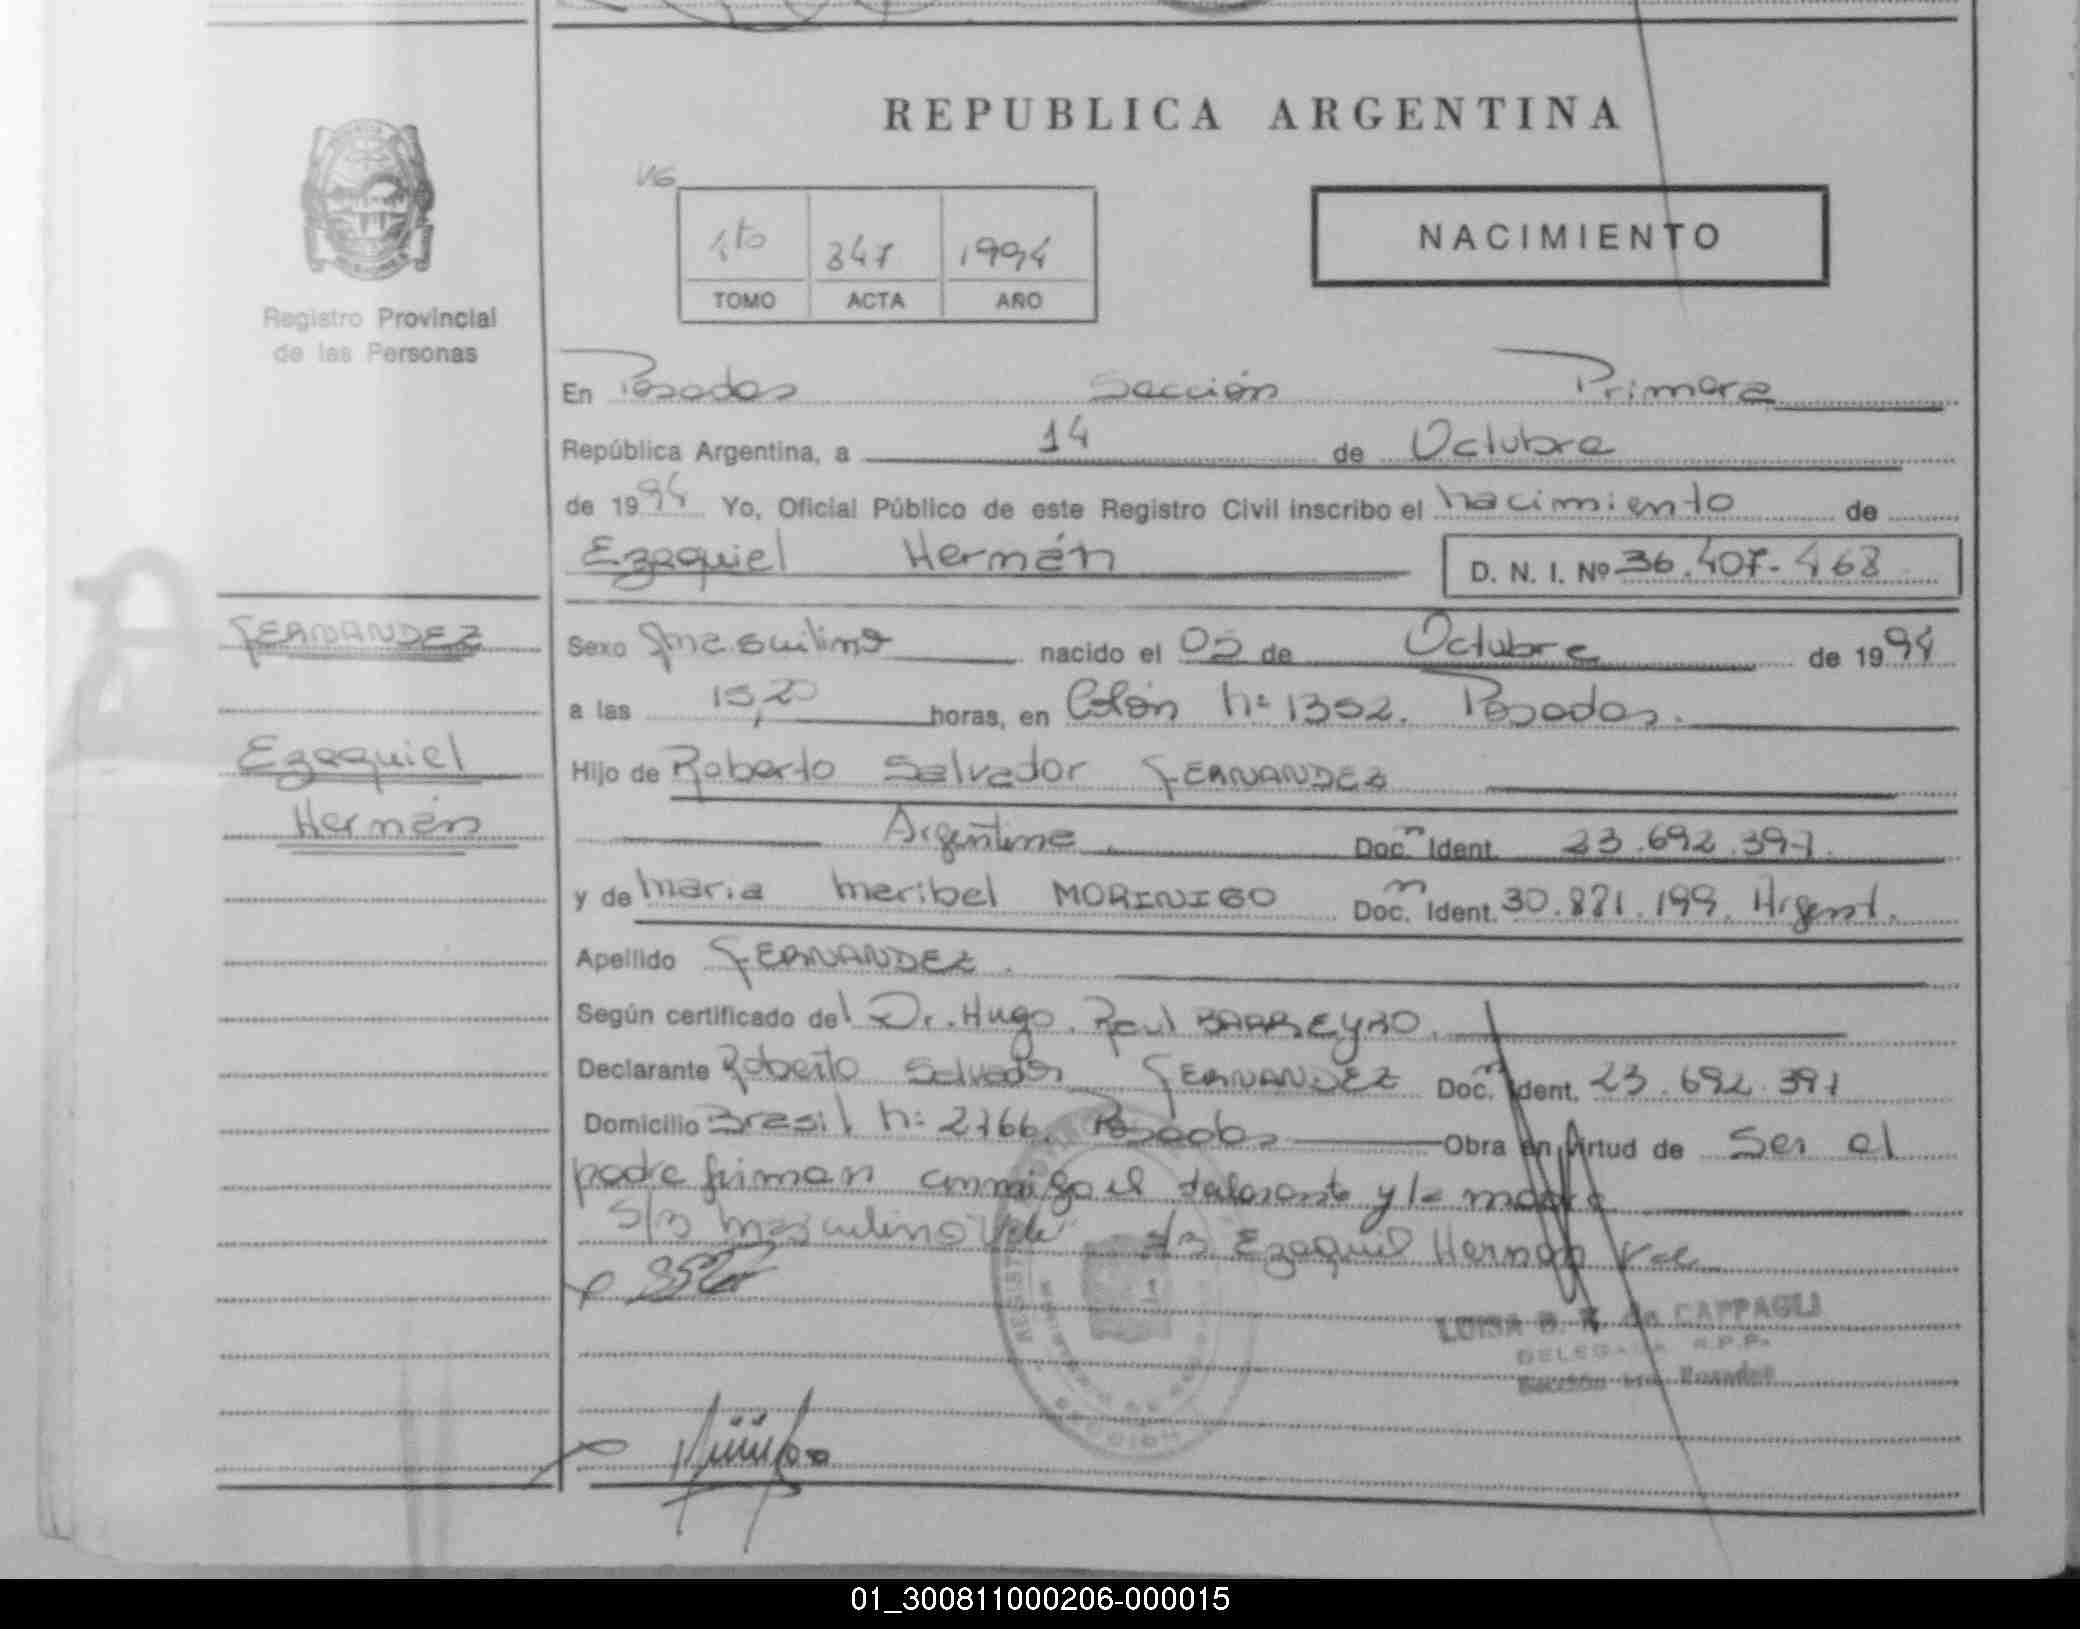 REPUBLICA ARGENTINA
NACIMIENTO
1to 347 1994
TOMO ACTA AÑO
Registro Provincial
de las Personas
En Posadas Sección Primera
República Argentina, a 14 de Octubre
de 1994 Yo, Oficial Público de este Registro Civil inscribo el nacimiento de
Ezequiel Hernán D. N. I. Nº 36.407.468
FERNANDEZ
Ezequiel
Hernán
Sexo masculino nacido el 02 de Octubre de 1994
a las 15,20 horas, en Colón nº 1352. Posadas.
Hijo de Roberto Salvador FERNANDEZ
Argentino. Doc. Ident. 23.692.391.
y de maria maribel MORINIGO Doc. Ident. 30.871.199. Argent.
Apellido FERNANDEZ.
Según certificado del Dr. Hugo Raul BARREYRO.
Declarante Roberto Salvador FERNANDEZ Doc. Ident. 23.692.391
Domicilio Brasil nº 2766. Posadas Obra en virtud de Ser el
padre firman conmigo el declarante y la madre
S/R masculino Vale S/R Ezequiel Hernán Vale
LUISA B. de CAPPAGLI
DELEGADA R.P.P.
Sección 1ra. Posadas
01_300811000206-000015